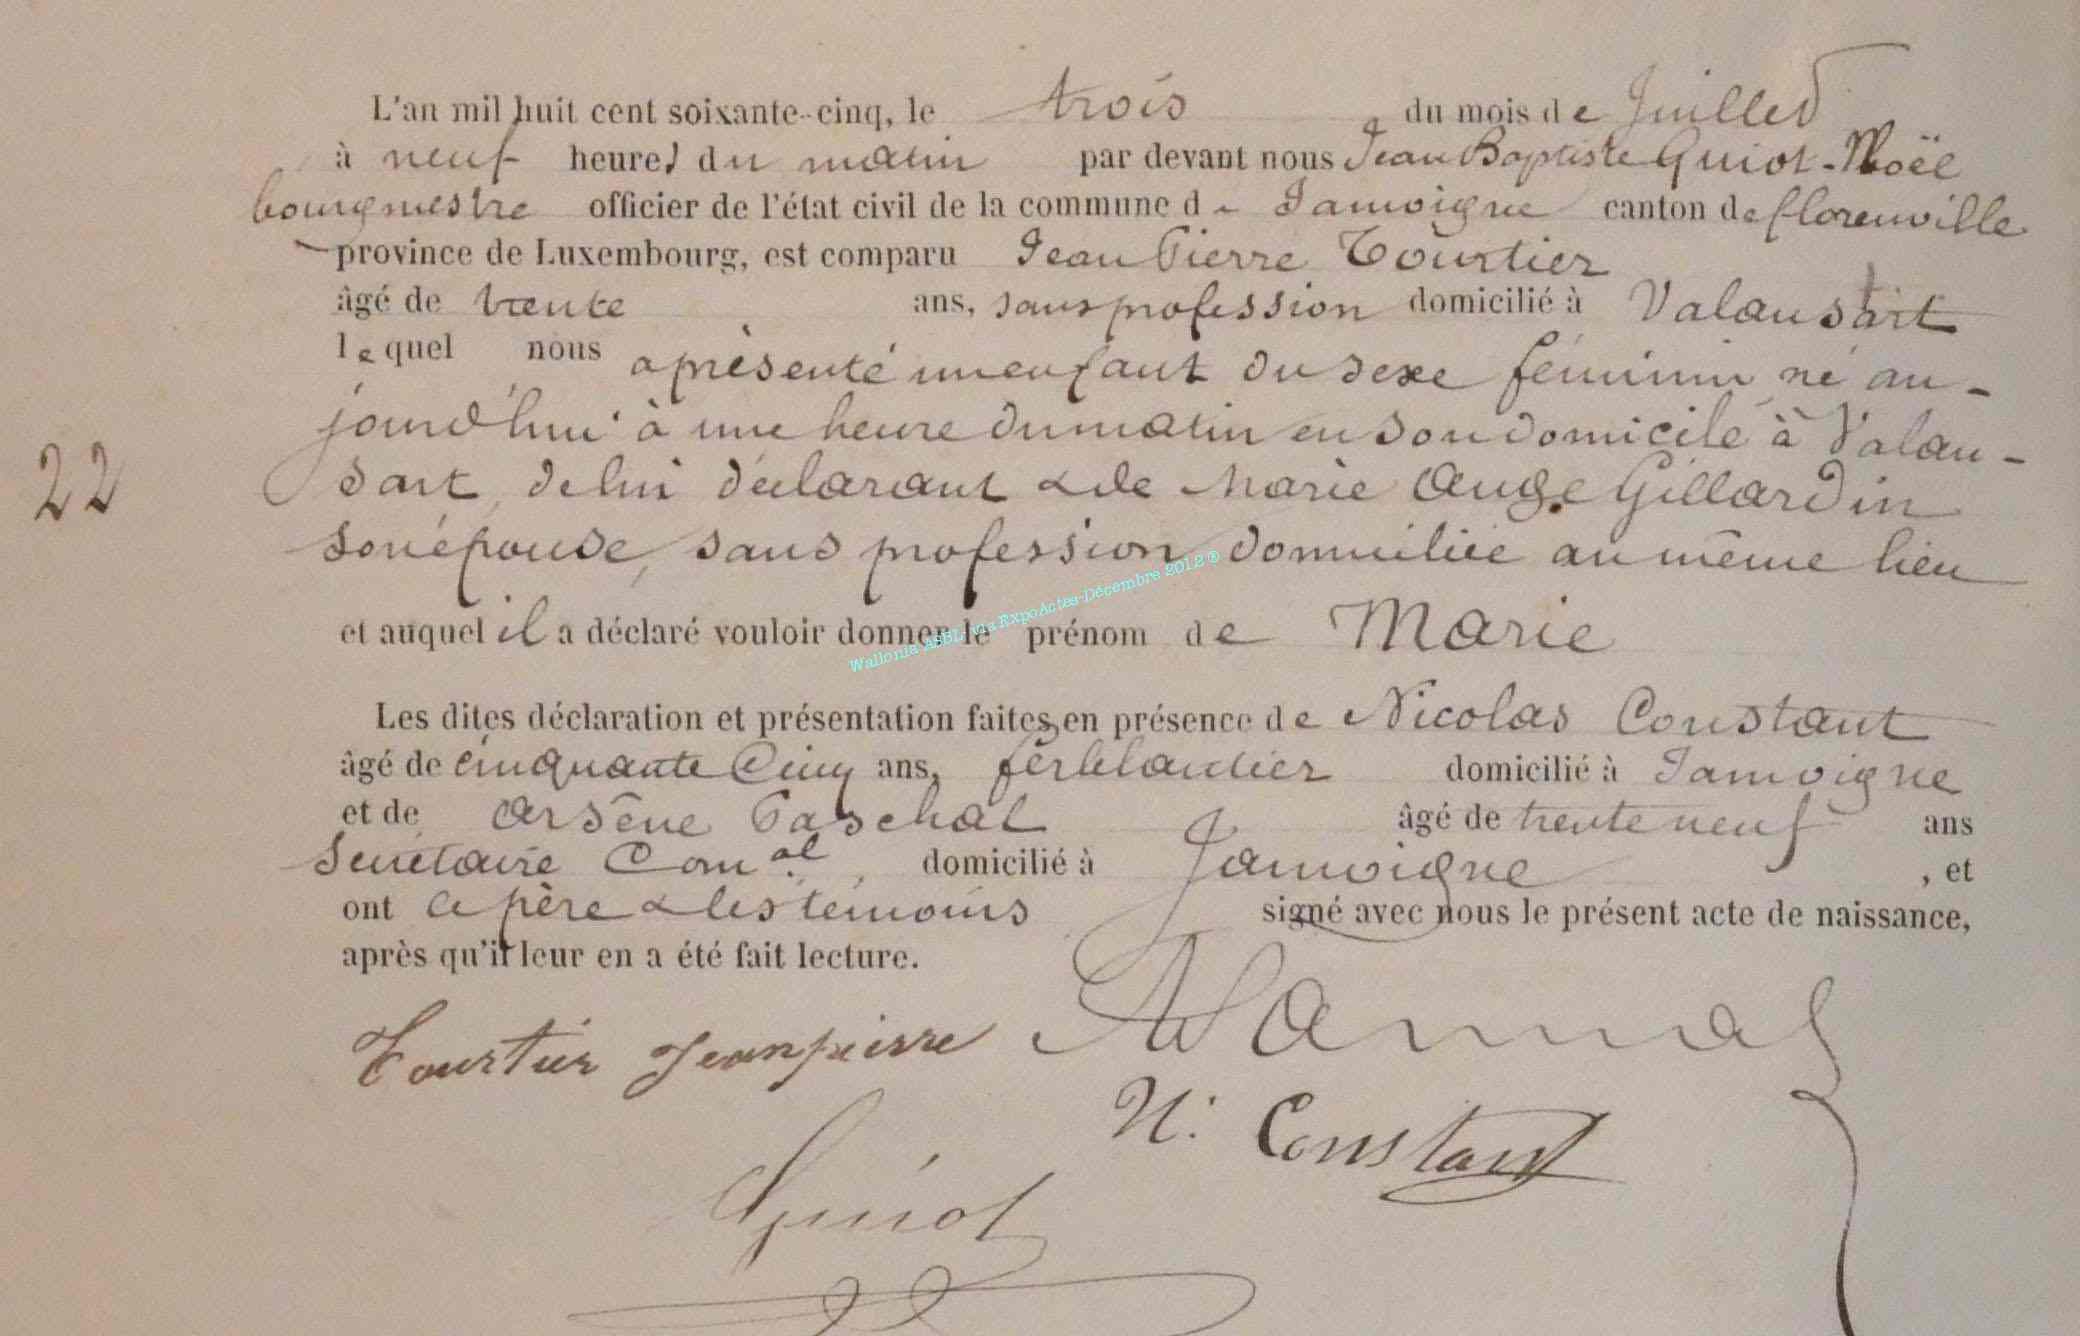 L'an mil huit cent soixante-cinq, le trois du mois de Juillet
à neuf heures du matin par devant nous Jean Baptiste Guiot-Noël
bourgmestre officier de l'état civil de la commune de Jamoigne canton de florenville
province de Luxembourg, est comparu Jean Pierre Tourtier
âgé de trente ans, sans profession domicilié à Valansart
lequel nous a présenté un enfant du sexe féminin né au-
jourd'hui à une heure du matin en son domicile à Valan-
sart, de lui déclarant & de Marie Ange Gillardin
son épouse, sans profession domiciliée au même lieu
22
et auquel il a déclaré vouloir donner le prénom de Marie
Wallonia ASBL, via ExpoActes-Décembre 2012 ®
Les dites déclaration et présentation faites en présence de Nicolas Constant
âgé de cinquante Cinq ans, ferblantier domicilié à Jamoigne
et de Arsène Paschal âgé de trente neuf ans
Secrétaire Com.al, domicilié à Jamoigne, et
ont le père & les témoins signé avec nous le présent acte de naissance,
après qu'il leur en a été fait lecture.
Tourtier Jeanpierre
N. Constant
Guiot